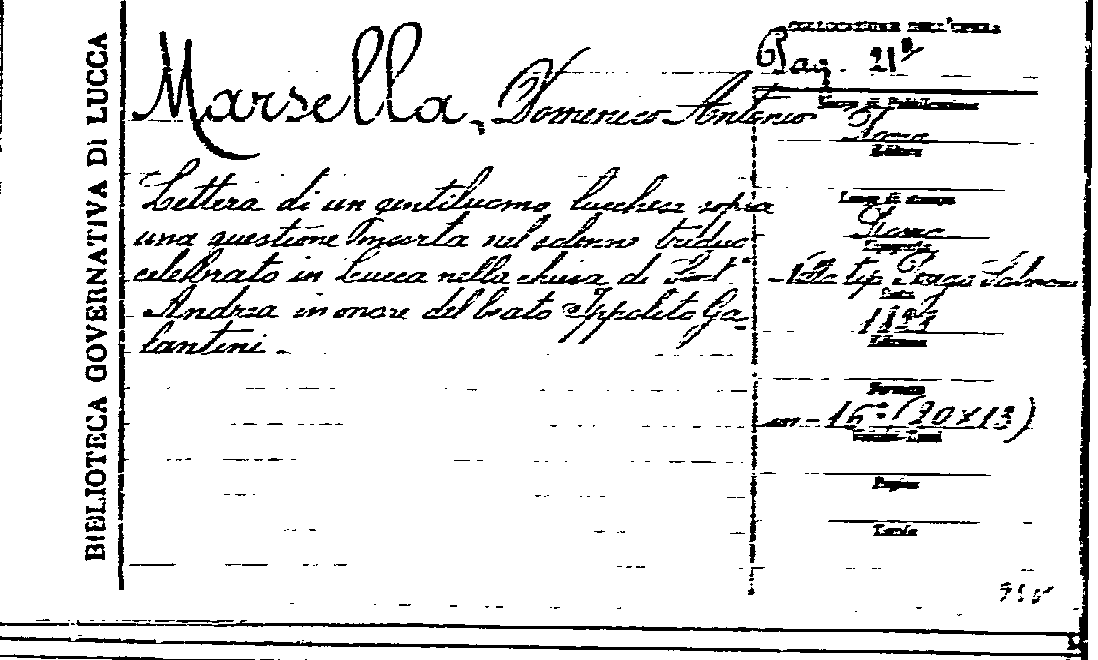 BIBLIOTECA GOVERNATIVA DI LUCCA
Marsella, Domenico Antonio
Lettera di un gentiluomo lucchese sopra
una questione insorta nel solenne triduo
celebrato in Lucca nella chiesa di Sant'
Andrea in onore del beato Ippolito Ga-
lantini.
COLLOCAZIONE DELL'OPERA
Pag. 21
Luogo di Pubblicazione
Roma
Editore
Luogo di stampa
Roma
Tipografia
tip.
Data
Edizione
Formato
in-16° (20x13)
Pagine